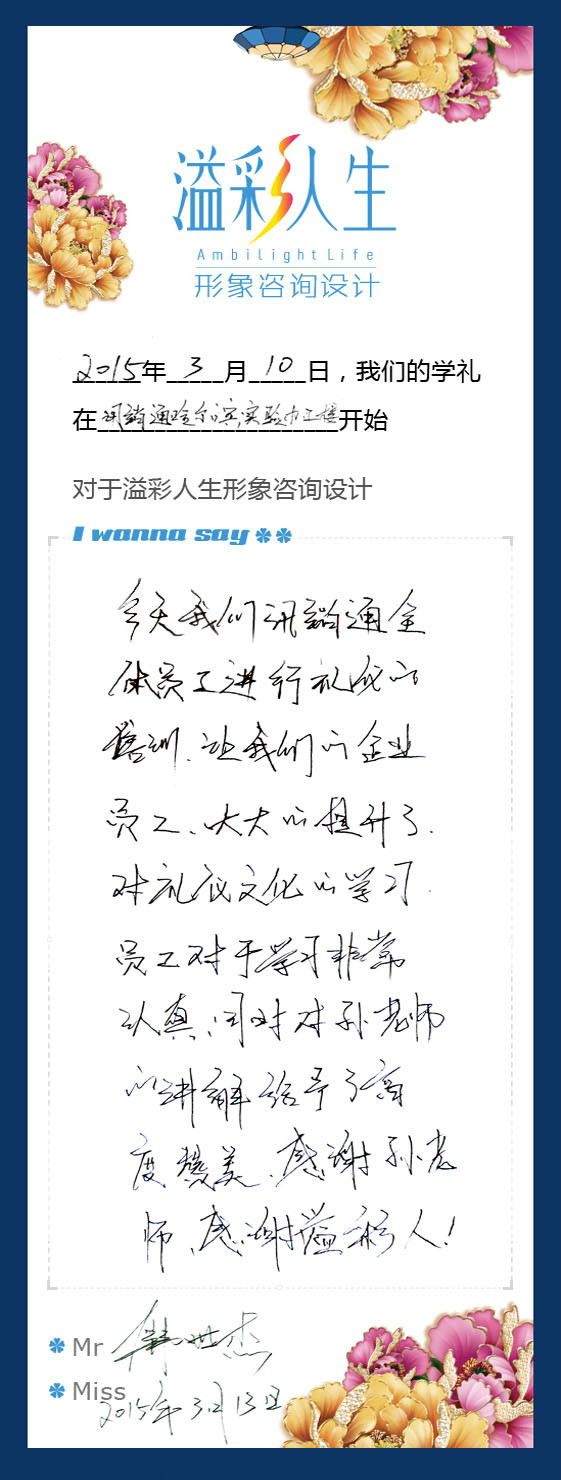 溢彩人生
Ambilight Life
形象咨询设计
2015年 3 月 10 日，我们的学礼
在讯销通哈尔滨实验办公楼开始
对于溢彩人生形象咨询设计
I wanna say
今天我们讯销通全
体员工进行礼仪的
培训、让我们的企业
员工、大大的提升了
对礼仪文化的学习
员工对于学习非常
认真，同时对孙老师
的讲解给予了高
度赞美、感谢孙老
师、感谢溢彩人！
Mr 韩世杰
Miss
2015年3月13日